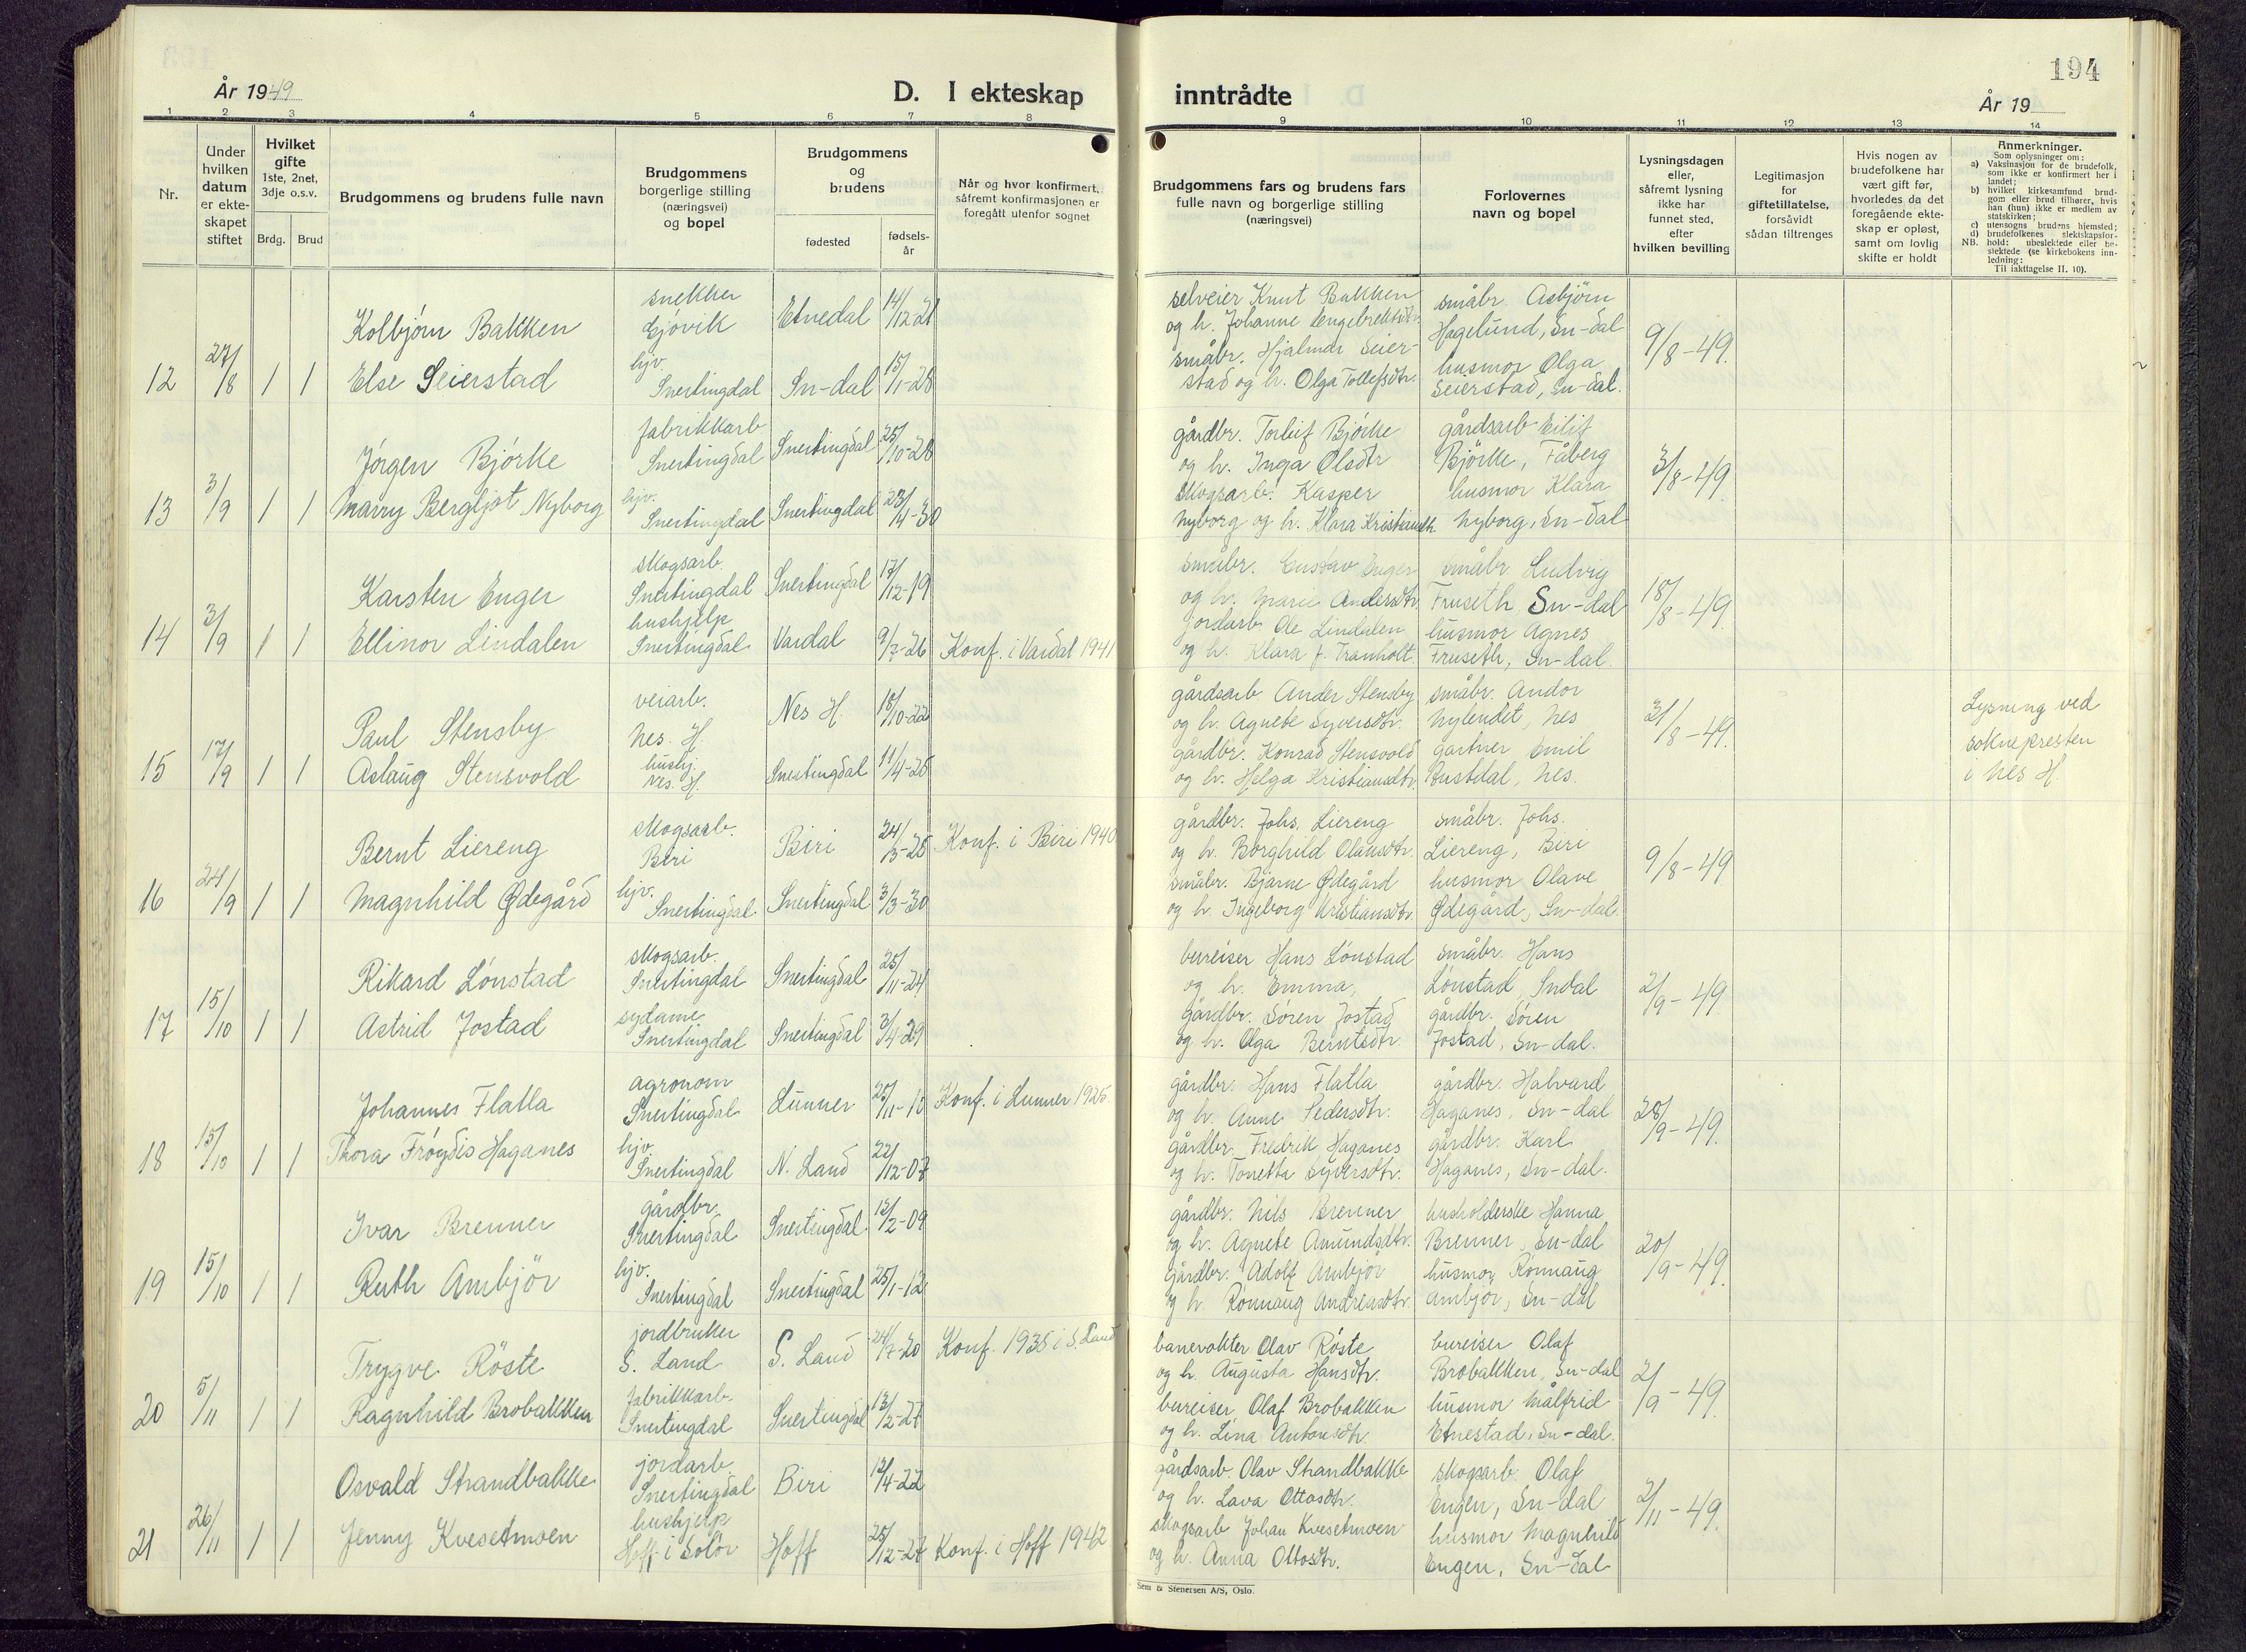 194
År 1949
D. I ekteskap inntrådte
År 19
1 2 3 4 5 6 7 8 9 10 11 12 13 14
Nr.
Under hvilken datum er ekte-skapet stiftet
Hvilket gifte 1ste, 2net, 3dje o.s.v.
Brdg. Brud
Brudgommens og brudens fulle navn
Brudgommens borgerlige stilling (næringsvei) og bopel
Brudgommens og brudens
fødested
fødsels-år
Når og hvor konfirmert, såfremt konfirmasjonen er foregått utenfor sognet
Brudgommens fars og brudens fars fulle navn og borgerlige stilling (næringsvei)
Forlovernes navn og bopel
Lysningsdagen eller, såfremt lysning ikke har funnet sted, efter hvilken bevilling
Legitimasjon for giftetillatelse, forsåvidt sådan tiltrenges
Hvis nogen av brudefolkene har vært gift før, hvorledes da det foregående ekte-skap er opløst, samt om lovlig skifte er holdt
Anmerkninger.
Som oplysninger om:
a) Vaksinasjon for de brudefolk, som ikke er konfirmert her i landet;
b) hvilket kirkesamfund brud-gom eller brud tilhører, hvis han (hun) ikke er medlem av statskirken;
c) utensogns brudens hjemsted;
d) brudefolkenes slektskapsfor-hold: ubeslektede eller be-slektede (se kirkebokens inn-ledning;
NB. Til iakttagelse II. 10).
12 27/8 1 1
Kolbjørn Bakken
snekker Gjøvik
Etnedal 14/12-21
Else Seierstad
hjv. Snertingdal
Sn-dal 15/1-28
selveier Knut Bakken
og h. Johanne Engebrektsdtr.
småbr. Hjalmar Seier-
stad og h. Olga Tollefsdtr.
småbr. Asbjörn
Hagelund, Sn-dal
husmor Olga
Seierstad, Sn-dal.
9/8-49.
13 3/9 1 1
Jörgen Björke
fabrikkarb Snertingdal
Snertingdal 25/10-28
Marry Bergljot Nyborg
hjv. Snertingdal
Snertingdal 23/4-30
gårdbr. Torleif Björke
og h. Inga Olsdtr
Skogsarb. Kasper
Nyborg og h. Klara Kristiansdtr.
gårdsarb Eilif
Björke, Fåberg
husmor Klara
Nyborg, Sn-dal
3/8-49
14 3/9 1 1
Karsten Enger
skogsarb. Snertingdal
Snertingdal 17/12-19
Ellinor Lindalen
hushjelp Snertingdal
Vardal 9/7-26
Konf. i Vardal 1941
småbr. Gustav Enger
og h. Marie Andersdtr.
Jordarb. Ole Lindalen
og h. Klara f. Tranholt.
småbr. Ludvig
Fruseth Sn-dal
husmor Agnes
Fruseth, Sn-dal.
18/8-49.
15 17/9 1 1
Paul Stensby
veiarb. Nes. H.
Nes H. 18/10-22
Aslaug Stensvold
hushj. Nes. H.
Snertingdal 11/4-25
gårdsarb Ander Stensby
og h. Agnete Syversdtr.
gårdbr. Konrad Stensvold
og h. Helga Kristiansdtr.
småbr. Andor
Nylendet, Nes
gartner Emil
Rustdal, Nes.
31/8-49.
Lysning ved
soknepresten
i Nes H.
16 24/9 1 1
Bernt Liereng
Skogsarb. Biri
Biri 24/3-25
Konf. i Biri 1940
Magnhild Ødegård
hjv. Snertingdal
Snertingdal 3/3-30
gårdbr. Johs. Liereng
og h. Borghild Olausdtr.
småbr. Bjarne Ødegård
og h. Ingeborg Kristiansdtr.
småbr. Johs.
Liereng, Biri
husmor Olave
Ødegård, Sn-dal.
9/8-49
17 15/10 1 1
Rikard Lönstad
skogsarb. Snertingdal
Snertingdal 25/11-24
Astrid Jostad
sydame Snertingdal
Snertingdal 3/4-29
bureiser Hans Lönstad
og h. Emma,
gårdbr. Sören Jostad
og h. Olga Berntsdtr.
småbr. Hans
Lönstad, Sndal
gårdbr. Sören
Jostad, Sn-dal.
2/9-49.
18 15/10 1 1
Johannes Flatla
agronom Snertingdal
Lunner 25/11-10
Konf. i Lunner 1925.
Thora Fröydis Haganes
hjv. Snertingdal
N. Land 22/12-07
gårdbr. Hans Flatla
og h. Anne Pedersdtr.
gårdbr. Fredrik Haganes
og h. Tonetta Syversdtr.
gårdbr. Halvard
Haganes, Sn-dal
gårdbr. Karl
Haganes, Sn-dal.
28/9-49.
19 15/10 1 1
Ivar Brenner
gårdbr. Snertingdal
Snertingdal 12/2-09
Ruth Ambjör
hjv. Snertingdal
Snertingdal 25/1-12
gårdbr. Nils Brenner
og h. Agnete Amundsdtr.
gårdbr. Adolf Ambjör
og h. Ronnaug Andreasdtr.
husholderske Hanna
Brenner, Sn-dal
husmor Ronnaug
Ambjör, Sn-dal
20/9-49.
20 5/11 1 1
Trygve Röste
jordbruker S. Land
S. Land 24/7-20
Konf. 1935 i S. Land
Ragnhild Brobakken
fabrikkarb. Snertingdal
Snertingdal 13/2-27
banevokter Olav Röste
og h. Augusta Hansdtr.
bureiser Olaf Brobakken
og h. Lina Antonsdtr.
bureiser Olaf
Brobakken, Sn-dal
husmor Målfrid
Etnestad, Sn-dal.
2/9-49.
21 26/11 1 1
Osvald Strandbakke
jordarb. Snertingdal
Biri 12/4-22
Jenny Kvesetmoen
hushjelp Hoff i Solör
Hoff 25/12-27
Konf. i Hoff 1942
gårdsarb. Olav Strandbakke
og h. Lava Ottosdtr.
skogsarb Johan Kvesetmoen
og h. Anna Ottosdtr.
skogsarb. Olaf
Engen, Sn-dal
husmor Magnhild
Engen, Sn-dal
2/11-49.
Sem & Stenersen A/S, Oslo.